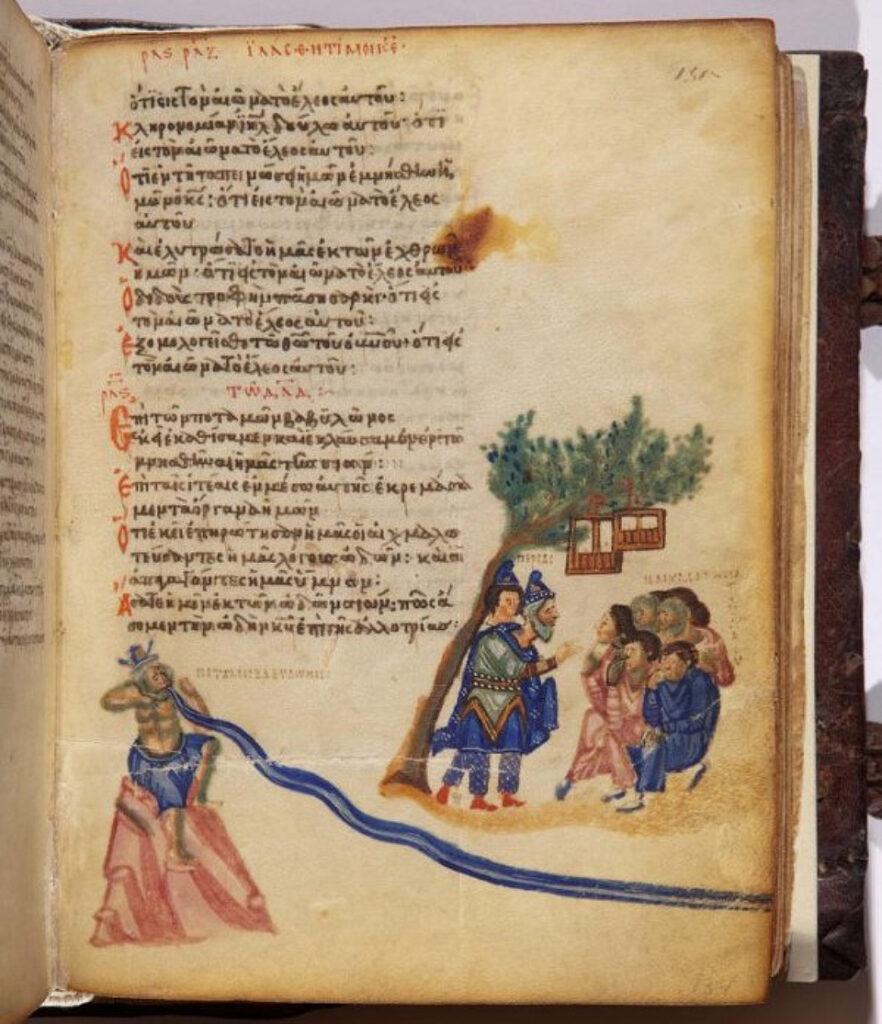 ὅτι εἰς τὸν αἰῶνα τὸ ἔλεος αὐτοῦ:
Κληρονομίαν ἰηλ δούλω αὐτοῦ· ὅτι
εἰς τὸν αἰῶνα τὸ ἔλεος αὐτοῦ:
Ὅτι ἐν τῆ ταπεινώσει ἡμῶν ἐμνήσθη ἡ
μῶν ὁ κς: ὅτι εἰς τὸν αἰῶνα τὸ ἔλεος
αὐτοῦ
Καὶ ἐλυτρώσατο ἡμᾶς ἐκ τῶν ἐχθρῶν
ἡμῶν· ὅτι εἰς τὸν αἰῶνα τὸ ἔλεος αὐτοῦ
Ὁ διδοὺς τροφὴν πάση σαρκί· ὅτι εἰς
τὸν αἰῶνα τὸ ἔλεος αὐτοῦ:
Ἐξομολογεῖσθε τῶ θῶ τοῦ οὐνοῦ· ὅτι εἰς
τὸν αἰῶνα τὸ ἔλεος αὐτοῦ:
Τῶ δαδ:
Ἐπὶ τῶν ποταμῶν βαβυλῶνος
ἐκεῖ ἐκαθίσαμεν καὶ ἐκλαύσαμεν ἐν τῶ
μνησθῆναι ἡμᾶς τῆς σιών:
Ἐπὶ ταῖς ἰτέαις ἐν μέσω αὐτῆς ἐκρεμάσα
μεν τὰ ὄργανα ἡμῶν
Ὅτι ἐκεῖ ἐπηρώτησαν ἡμᾶς οἱ αἰχμαλω
τεύσαντες ἡμᾶς λόγους ὠδῶν: καὶ οἱ
ἀπαγαγόντες ἡμᾶς ὕμνον:
Ἄσατε ἡμῖν ἐκ τῶν ὠδῶν σιών: πῶς ἄ
σωμεν τὴν ὠδὴν κυ ἐπὶ γῆς ἀλλοτρίας: